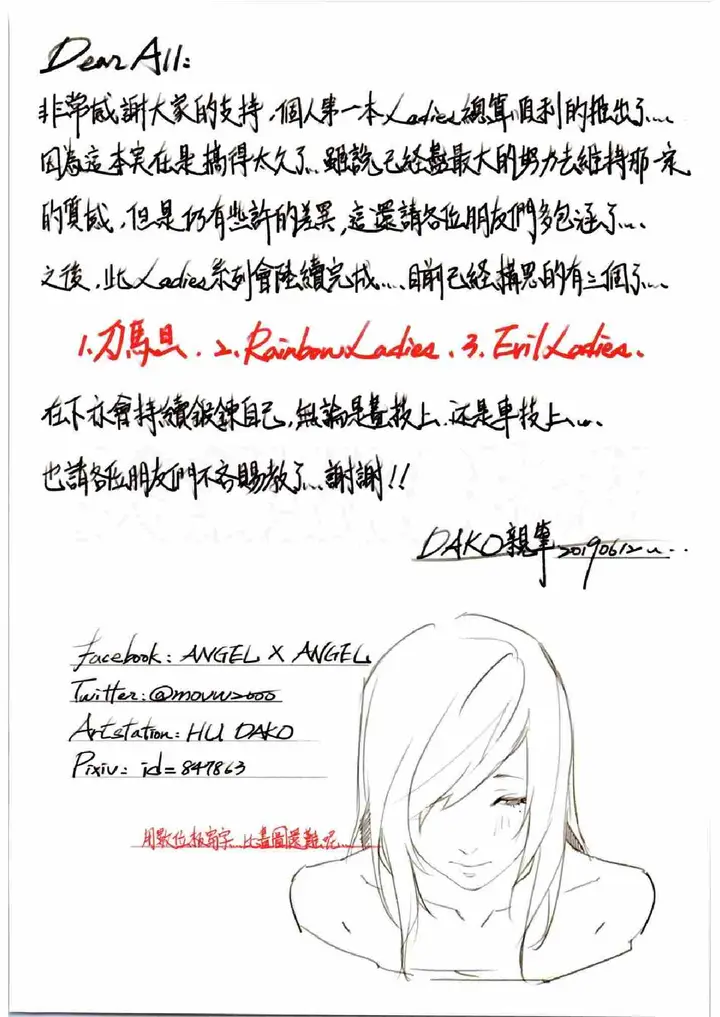 Dear All:
非常感謝大家的支持，個人第一本Ladies總算順利的推出了....
因為這本実在是搞得太久了...雖說已經盡最大的努力去維持那一定
的質感，但是仍有些許的差異，這還請各位朋友們多包涵了...
之後，此Ladies系列會陸續完成.....目前已經構思的有三個了....
1.刀馬旦．2.Rainbow Ladies．3.Evil Ladies．
在下亦會持續鍛鍊自己，無論是畫技上 还是車技上....
也請各位朋友們不吝賜教了....謝謝!!
DAKO親筆 20190612 ...
Facebook: ANGEL X ANGEL
Twitter: @movw2000
Artstation: HU DAKO
Pixiv: id=847863
用數位板寫字...比畫圖還難呢....